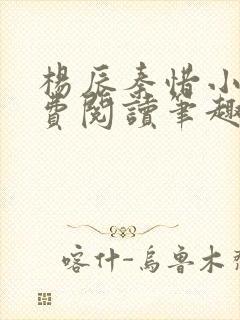 楊辰秦惜小
費閱讀筆趣
喀什-烏魯木齊